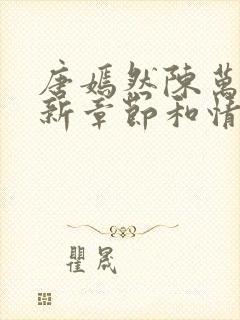 唐嫣然陳萬
新章節和情
瞿晟